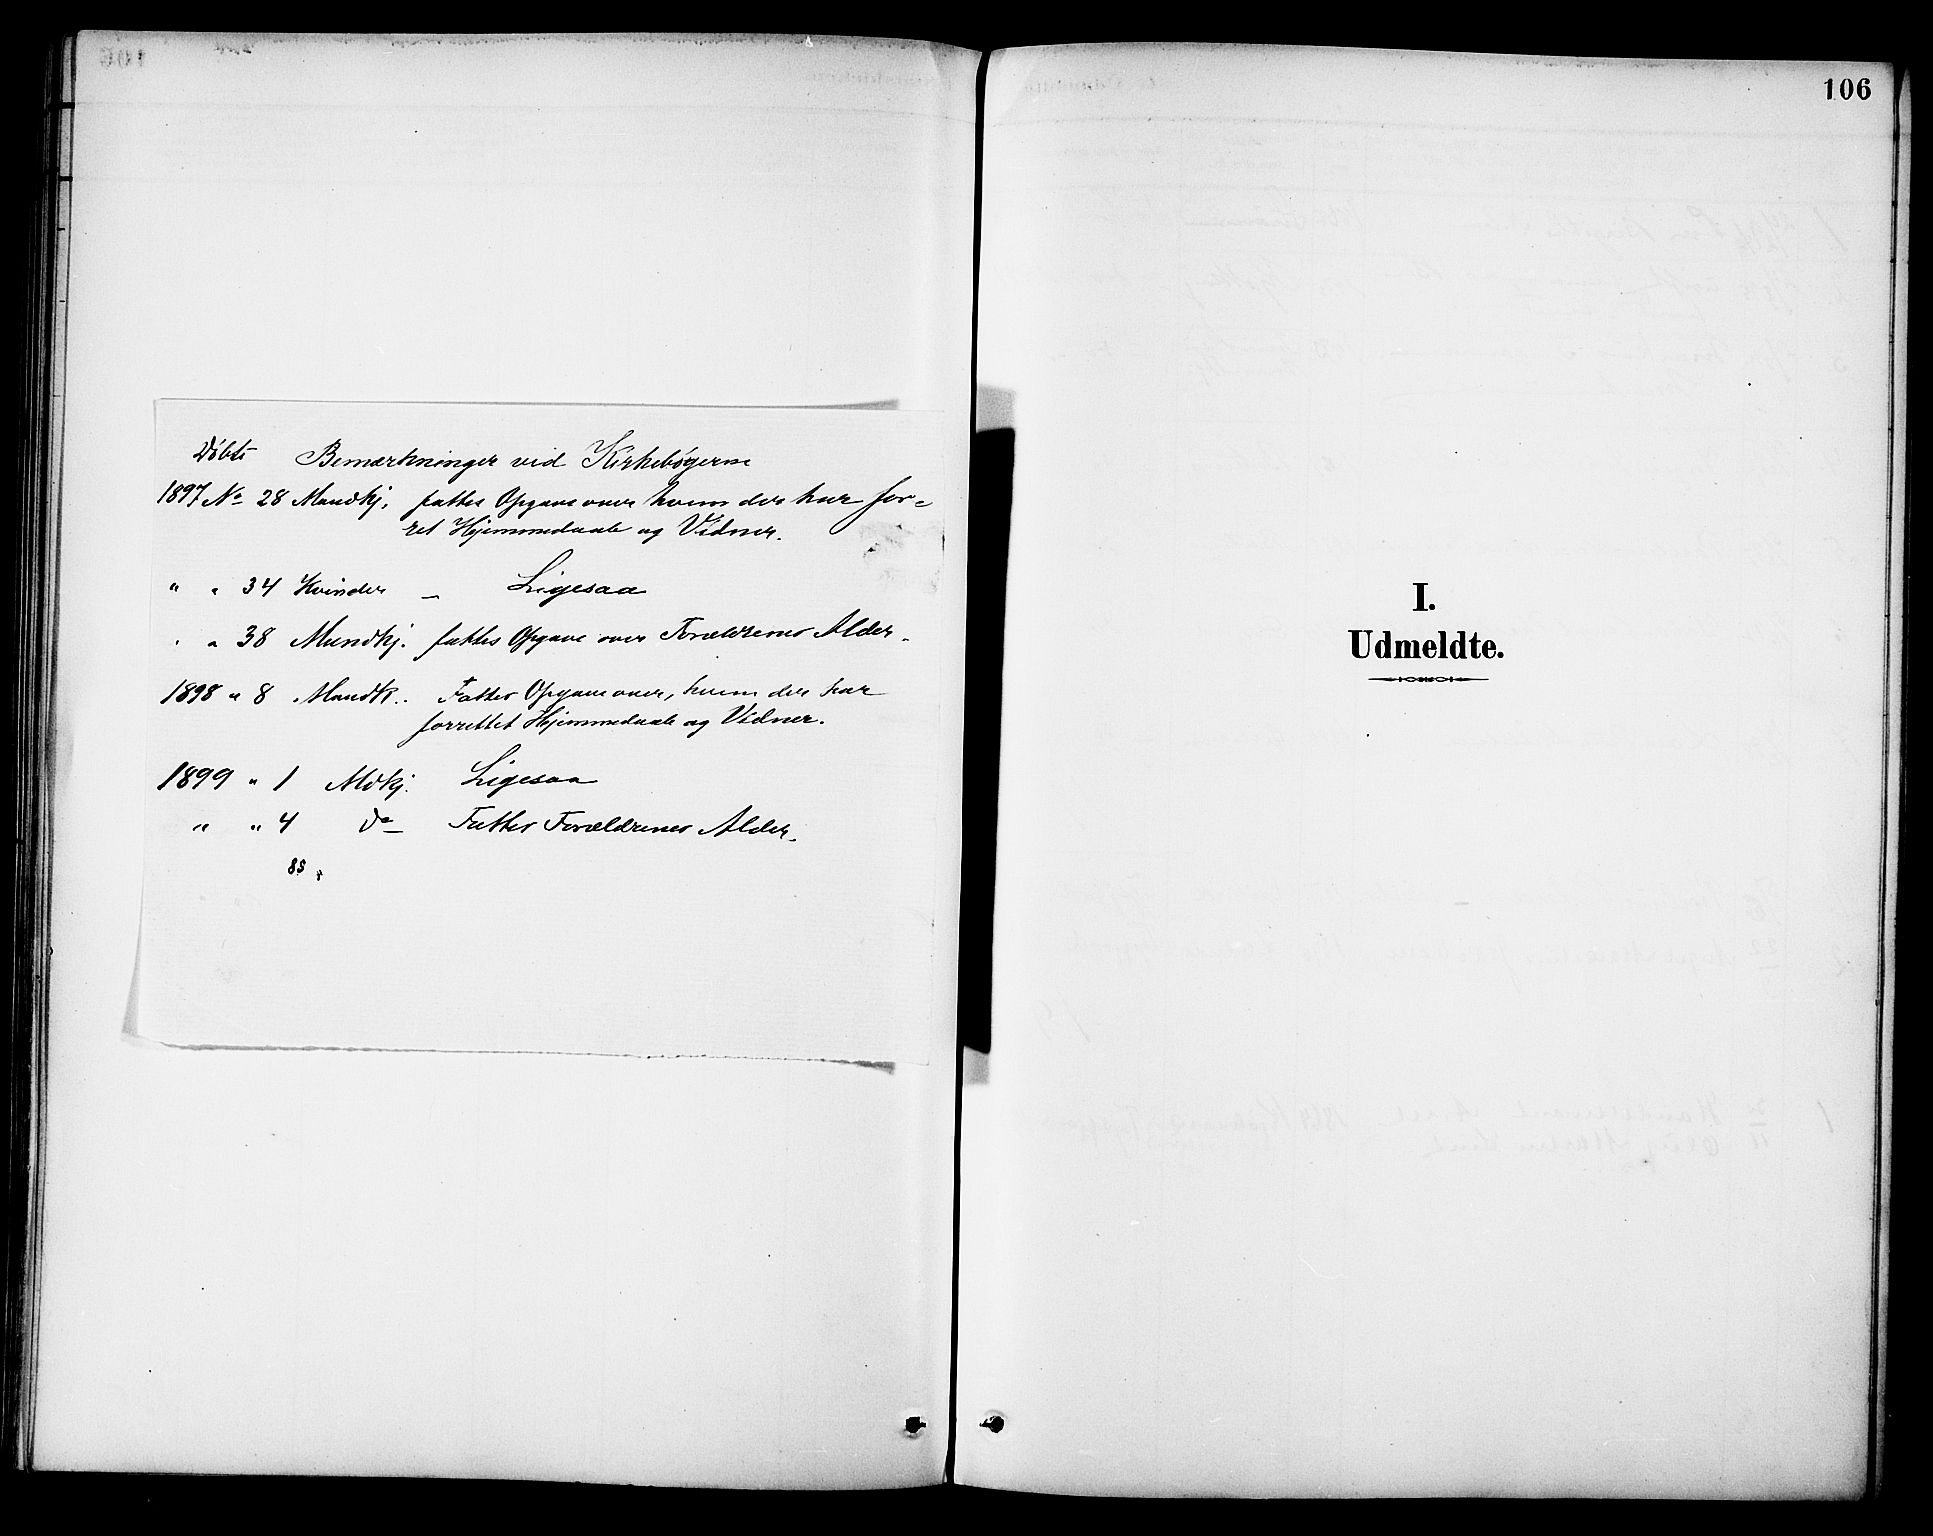 Døbte Bemærkninger ved Kirkebøgerne
1897 No 28 Mandkj. fattes Opgave over hvem der har for-
ret Hjemmedaab og Vidner.
" " 34 Kvinder – Ligesaa
" " 38 Mandkj. fattes Opgave over Forældrenes Alder.
1898 " 8 Mandk. Fattes Opgave over, hvem der har
forrettet Hjemmedaab og Vidner.
1899 " 1 Mdkj. Ligesaa
" " 4 Do Fattes Forældrenes Alder.
85
106
I.
Udmeldte.